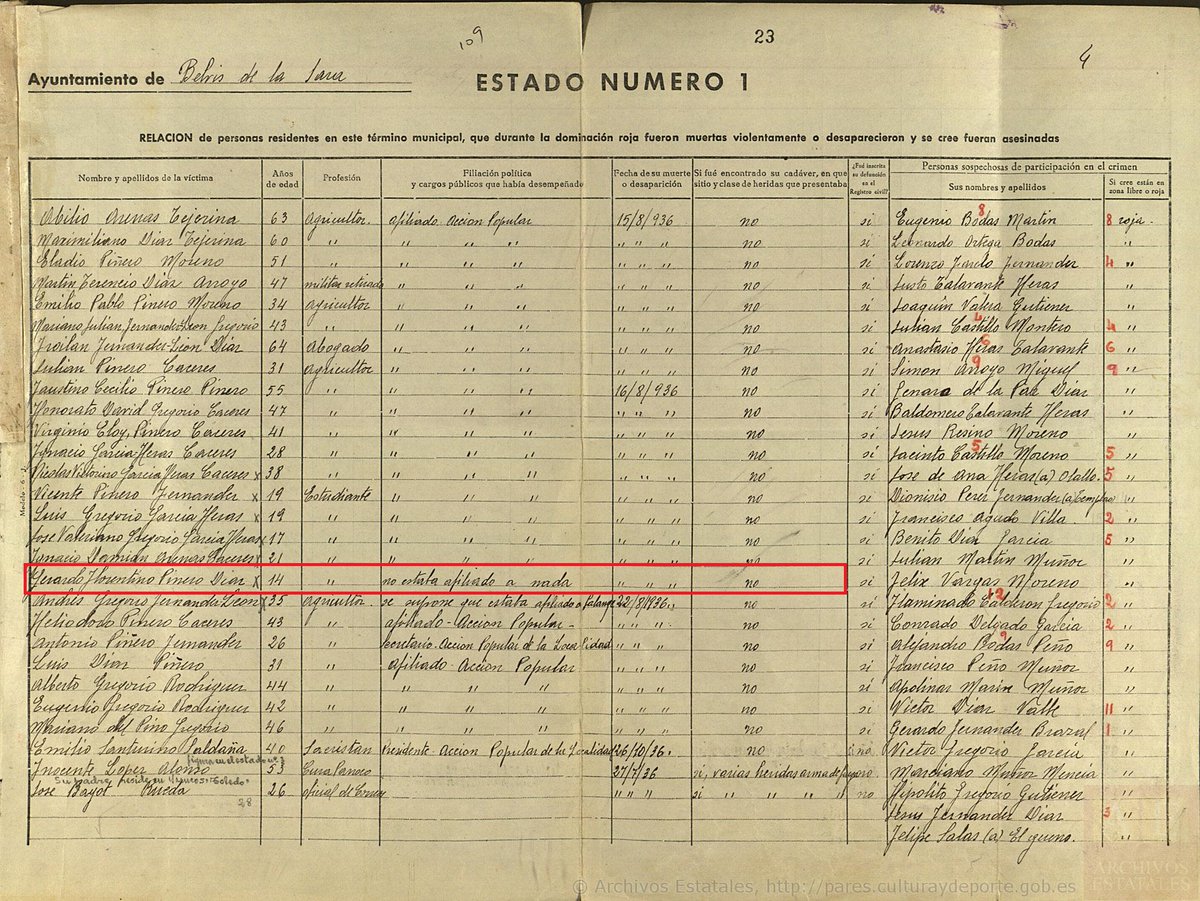 109
23
4
Ayuntamiento de Belvis de la Jara
ESTADO NUMERO 1
RELACION de personas residentes en este término municipal, que durante la dominación roja fueron muertas violentamente o desaparecieron y se cree fueran asesinadas
Nombre y apellidos de la víctima Años de edad Profesión Filiación política y cargos públicos que había desempeñado Fecha de su muerte o desaparición Si fué encontrado su cadáver, en que sitio y clase de heridas que presentaba ¿Fué inscrita su defunción en el Registro civil? Personas sospechosas de participación en el crimen
Sus nombres y apellidos Si cree están en zona libre o roja
Abilio Arenas Tejerina 63 agricultor afiliado Accion Popular 15/8/936 no si Eugenio Bodas Martin 8 8 roja
Maximiliano Diaz Tejerina 60 " " " " " " " no si Leonardo Ortega Bodas "
Eladio Piñero Moreno 51 " " " " " " " no si Lorenzo Fernandez 4 "
Martin Terencio Diaz Arroyo 47 militar retirado " " " " " " no si Justo Talavante Heras "
Emilio Pablo Pinero Moreno 34 agricultor " " " " " " no si Joaquin Valera Gutierrez "
Mariano Julian Fernandez-Leon Gregorio 43 " " " " " " " no si Julian Castillo Montero 4 4 "
Froilan Fernandez-Leon Diaz 64 Abogado " " " " " " no si Anastasio Heras Talavante 6 6 "
Julian Pinero Caceres 31 agricultor " " " " " " no si Simon Arroyo Miguel 9 9 "
Faustino Cecilio Pinero Pinero 55 " " " " 16/8/936 no si Jenara de la Paz Diaz "
Honorato David Gregorio Caceres 47 " " " " " " " no si Baldomero Talavante Heras "
Virginio Eloy Pinero Caceres 41 " " " " " " " no si Jesus Resino Moreno "
Ignacio Garcia Heras Caceres 28 " " " " " " " no si Jacinto Castillo Moreno 5 5 "
Nicolas Victorino Garcia Heras Caceres x 38 " " " " " " " no si Jose de Ana Heras (a) Otallo 5 "
Vicente Piñero Fernandez x 19 Estudiante " " " " " " no si Dionisio Perez Fernandez (a) "
Luis Gregorio Garcia Heras x 19 " " " " " " " no si Francisco Agudo Villa 2 "
Jose Valeriano Gregorio Garcia Heras x 17 " " " " " " " no si Benito Diaz Garcia 5 "
Ignacio Damian Arenas Caceres x 21 " " " " " " " no si Julian Martin Muñoz "
Gerardo Florentino Pinero Diaz x 14 " no estaba afiliado a nada " " " no si Felix Vargas Moreno "
Andres Gregorio Fernandez Leon x 35 agricultor se supone que estaba afiliado a falange 22/8/936 no si Flaminado Calderon Gregorio 12 2 "
Heliodoro Pinero Caceres 43 " afiliado-Accion Popular - " " " no si Conrado Delgado Garcia 2 "
Antonio Piñero Fernandez 26 " Secretario Accion Popular de la Localidad " " " no si Alejandro Bodas Peño 9 9 "
Luis Diaz Piñero 31 " Afiliado-Accion Popular " " " no si Francisco Peño Muñoz "
Alberto Gregorio Rodriguez 44 " " " " " " " no si Apolinar Marin Muñoz "
Eugenio Gregorio Rodriguez 42 " " " " " " " no si Victor Diaz Valle 11 "
Mariano del Pino Gregorio 46 " " " " " " " no si Gerardo Fernandez Brazal 1 "
Emilio Santurino Saldaña 40 Sacristan Presidente Accion Popular de la Localidad 26/10/36 no no Victor Gregorio Garcia "
figura en el estado nº 2
Inocente Lopez Alonso 53 Cura Parroco 27/7/36 si, varias heridas arma de fuego no Marciano Muñoz Mencia "
Su padre reside en Yepes-Toledo
Jose Bayot Rueda 26 oficial de Correos " " " si " " " " no Hipolito Gregorio Gutierrez "
28
Jesus Fernandez Diaz 3 "
Felipe Salas (a) El gueno. "
Modelo 6-2
ARCHIVOS ESTATALES
© Archivos Estatales, http://pares.culturaydeporte.gob.es